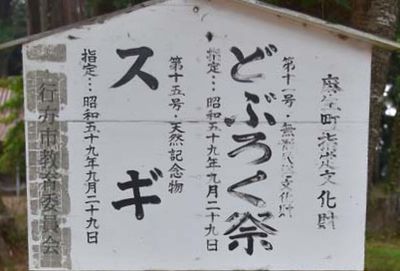 麻生町指定文化財
第十一号・無形民俗文化財
どぶろく祭
指定…昭和五十九年九月二十九日
第十五号・天然記念物
スギ
指定…昭和五十九年九月二十九日
行方市教育委員会